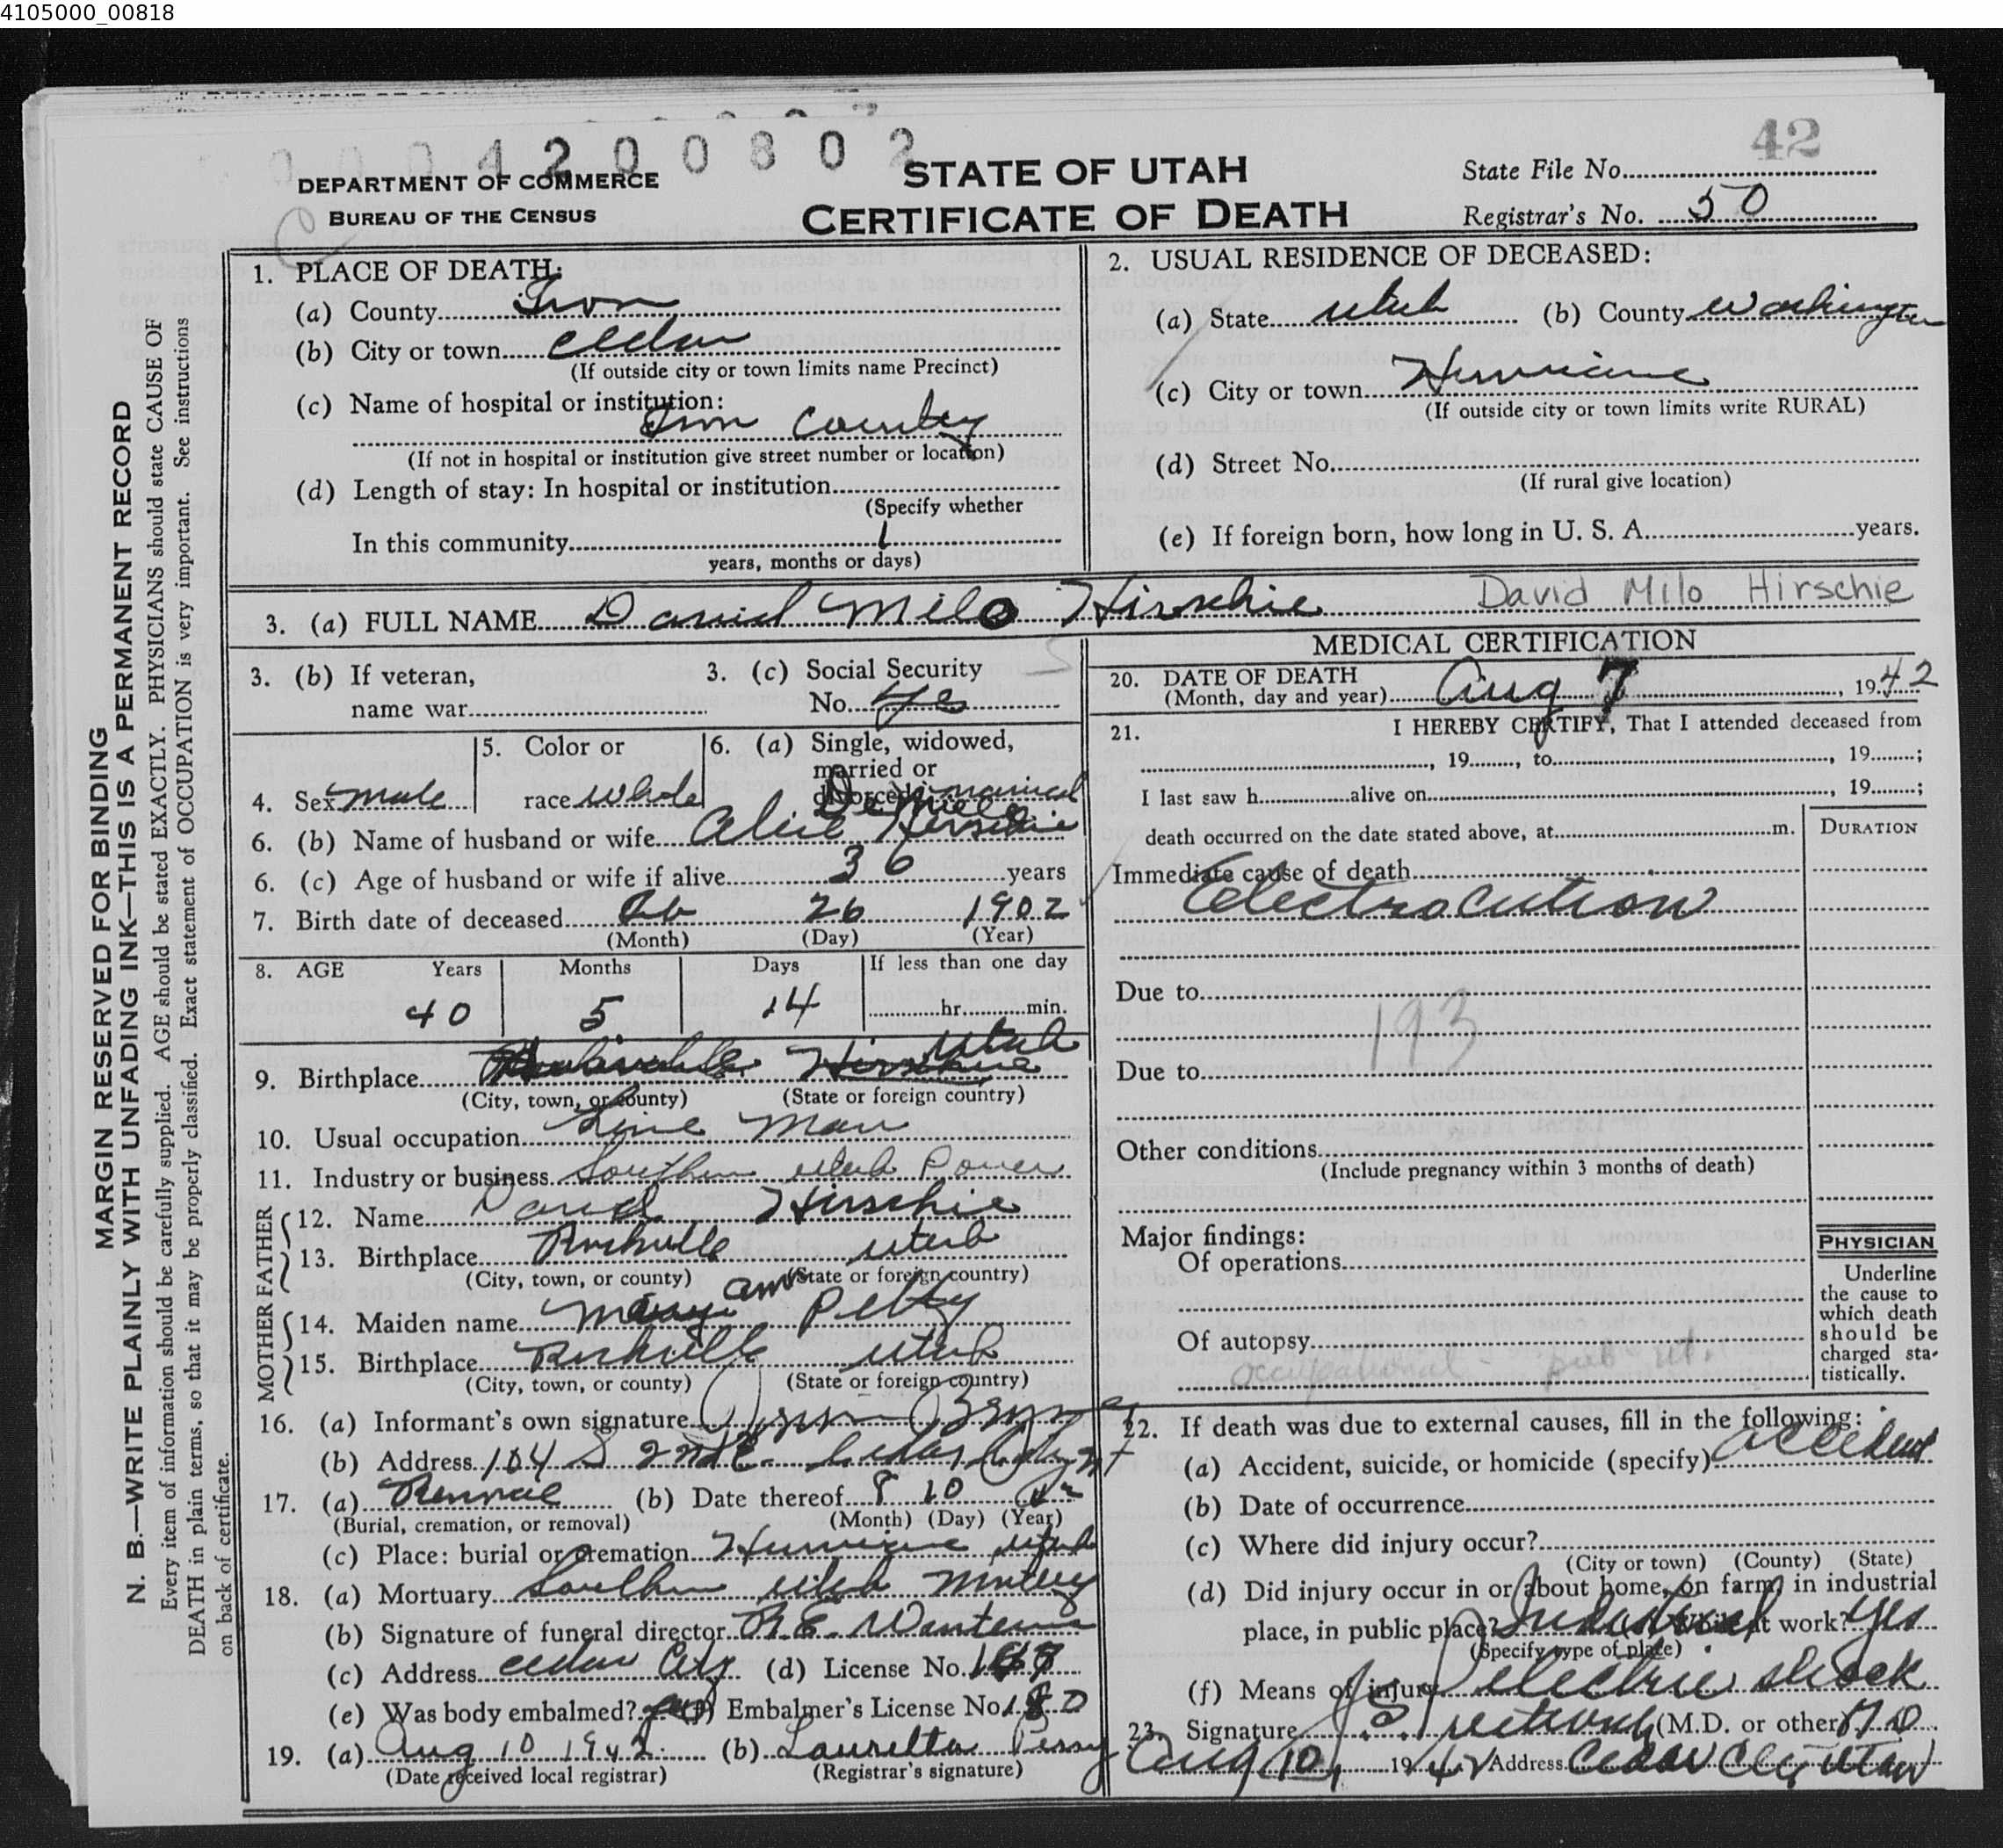 4105000_00818
0 0 0 4 2 0 0 8 0 2
42
DEPARTMENT OF COMMERCE
BUREAU OF THE CENSUS
STATE OF UTAH
CERTIFICATE OF DEATH
State File No.
Registrar's No. 50
MARGIN RESERVED FOR BINDING
N. B.—WRITE PLAINLY WITH UNFADING INK—THIS IS A PERMANENT RECORD
Every item of information should be carefully supplied. AGE should be stated EXACTLY. PHYSICIANS should state CAUSE OF
DEATH in plain terms, so that it may be properly classified. Exact statement of OCCUPATION is very important. See instructions
on back of certificate.
1. PLACE OF DEATH:
(a) County Iron
(b) City or town Cedar
(If outside city or town limits name Precinct)
(c) Name of hospital or institution:
Iron County
(If not in hospital or institution give street number or location)
(d) Length of stay: In hospital or institution
(Specify whether
In this community 1
years, months or days)
2. USUAL RESIDENCE OF DECEASED:
(a) State Utah (b) County Washington
(c) City or town Hurricane
(If outside city or town limits write RURAL)
(d) Street No.
(If rural give location)
(e) If foreign born, how long in U. S. A. years.
3. (a) FULL NAME David Milo Hirschie David Milo Hirschie
3. (b) If veteran,
name war
3. (c) Social Security
No. yes
4. Sex male
5. Color or
race white
6. (a) Single, widowed,
married or
divorced married
6. (b) Name of husband or wife Alice DeMille Hirschie
6. (c) Age of husband or wife if alive 36 years
7. Birth date of deceased Feb 26 1902
(Month) (Day) (Year)
8. AGE Years Months Days If less than one day
40 5 14 hr. min.
9. Birthplace Rockville Hirschie Utah
(City, town, or county) (State or foreign country)
10. Usual occupation Line Man
11. Industry or business Southern Utah Power
FATHER
12. Name David Hirschie
13. Birthplace Rockville Utah
(City, town, or county) (State or foreign country)
MOTHER
14. Maiden name Mary Ann Petty
15. Birthplace Rockville Utah
(City, town, or county) (State or foreign country)
16. (a) Informant's own signature
(b) Address 104 S 2nd E. Cedar City Ut
17. (a) Removal (b) Date thereof 8 10 42
(Burial, cremation, or removal) (Month) (Day) (Year)
(c) Place: burial or cremation Hurricane Utah
18. (a) Mortuary Southern Utah Mortuary
(b) Signature of funeral director
(c) Address Cedar City (d) License No.
(e) Was body embalmed? yes (f) Embalmer's License No. 180
19. (a) Aug 10 1942 (b) Lauretta Perry
(Date received local registrar) (Registrar's signature)
MEDICAL CERTIFICATION
20. DATE OF DEATH
(Month, day and year) Aug 7, 1942
21. I HEREBY CERTIFY, That I attended deceased from
, 19 , to , 19 ;
I last saw h alive on , 19 ;
death occurred on the date stated above, at m.
DURATION
Immediate cause of death
Electrocution
Due to
193
Due to
Other conditions
(Include pregnancy within 3 months of death)
Major findings:
Of operations
Of autopsy
occupational - pub ut.
PHYSICIAN
Underline
the cause to
which death
should be
charged sta-
tistically.
22. If death was due to external causes, fill in the following:
(a) Accident, suicide, or homicide (specify) accident
(b) Date of occurrence
(c) Where did injury occur?
(City or town) (County) (State)
(d) Did injury occur in or about home, on farm, in industrial
place, in public place? Industrial While at work? Yes
(Specify type of place)
(f) Means of injury electric shock
23. Signature (M.D. or other) M.D.
Aug 10, 1942 Address Cedar City Utah